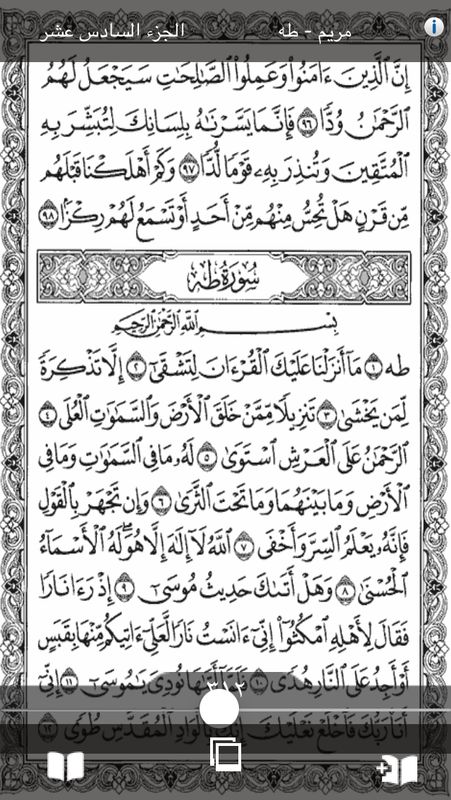 الجزء السادس عشر
مريم - طه
إِنَّ ٱلَّذِينَ ءَامَنُوا۟ وَعَمِلُوا۟ ٱلصَّٰلِحَٰتِ سَيَجْعَلُ لَهُمُ
ٱلرَّحْمَٰنُ وُدًّا ٩٦ فَإِنَّمَا يَسَّرْنَٰهُ بِلِسَانِكَ لِتُبَشِّرَ بِهِ
ٱلْمُتَّقِينَ وَتُنذِرَ بِهِۦ قَوْمًا لُّدًّا ٩٧ وَكَمْ أَهْلَكْنَا قَبْلَهُم
مِّن قَرْنٍ هَلْ تُحِسُّ مِنْهُم مِّنْ أَحَدٍ أَوْ تَسْمَعُ لَهُمْ رِكْزًۢا ٩٨
سُورَةُ طه
بِسْمِ ٱللَّهِ ٱلرَّحْمَٰنِ ٱلرَّحِيمِ
طه ١ مَآ أَنزَلْنَا عَلَيْكَ ٱلْقُرْءَانَ لِتَشْقَىٰٓ ٢ إِلَّا تَذْكِرَةً
لِّمَن يَخْشَىٰ ٣ تَنزِيلًا مِّمَّنْ خَلَقَ ٱلْأَرْضَ وَٱلسَّمَٰوَٰتِ ٱلْعُلَى ٤
ٱلرَّحْمَٰنُ عَلَى ٱلْعَرْشِ ٱسْتَوَىٰ ٥ لَهُۥ مَا فِى ٱلسَّمَٰوَٰتِ وَمَا فِى
ٱلْأَرْضِ وَمَا بَيْنَهُمَا وَمَا تَحْتَ ٱلثَّرَىٰ ٦ وَإِن تَجْهَرْ بِٱلْقَوْلِ
فَإِنَّهُۥ يَعْلَمُ ٱلسِّرَّ وَأَخْفَى ٧ ٱللَّهُ لَآ إِلَٰهَ إِلَّا هُوَ لَهُ ٱلْأَسْمَآءُ
ٱلْحُسْنَىٰ ٨ وَهَلْ أَتَىٰكَ حَدِيثُ مُوسَىٰٓ ٩ إِذْ رَءَا نَارًا
فَقَالَ لِأَهْلِهِ ٱمْكُثُوٓا۟ إِنِّىٓ ءَانَسْتُ نَارًا لَّعَلِّىٓ ءَاتِيكُم مِّنْهَا بِقَبَسٍ
أَوْ أَجِدُ عَلَى ٱلنَّارِ هُدًى ١٠ فَلَمَّآ أَتَىٰهَا نُودِىَ يَٰمُوسَىٰٓ ١١ إِنِّىٓ
٣١٢
أَنَا۠ رَبُّكَ فَٱخْلَعْ نَعْلَيْكَ إِنَّكَ بِٱلْوَادِ ٱلْمُقَدَّسِ طُوًى ١٢